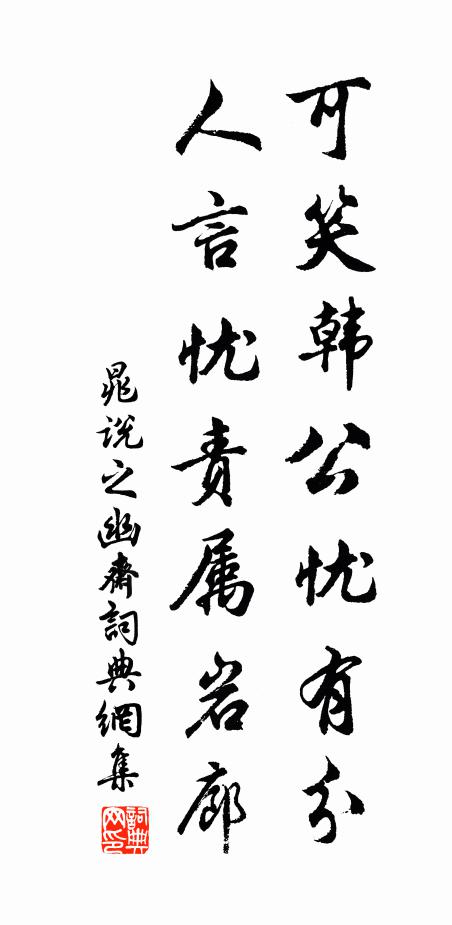 可笑韩公忧有分
人言忧责属岩廊
晁说之幽斋詞典網集
詞典網印